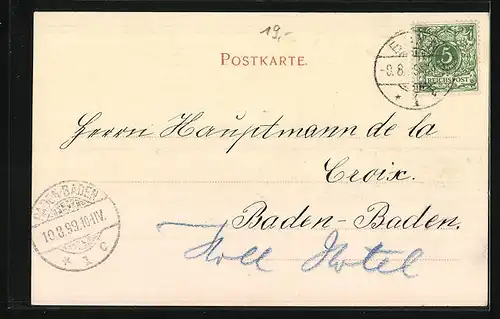 19,-
POSTKARTE.
5
REICHSPOST
-9.8.99
* 1
Herrn Hauptmann de la
Croix.
Baden-Baden.
BADEN-BADEN
10.8.99.10-11V.
* 1 c
Hotel